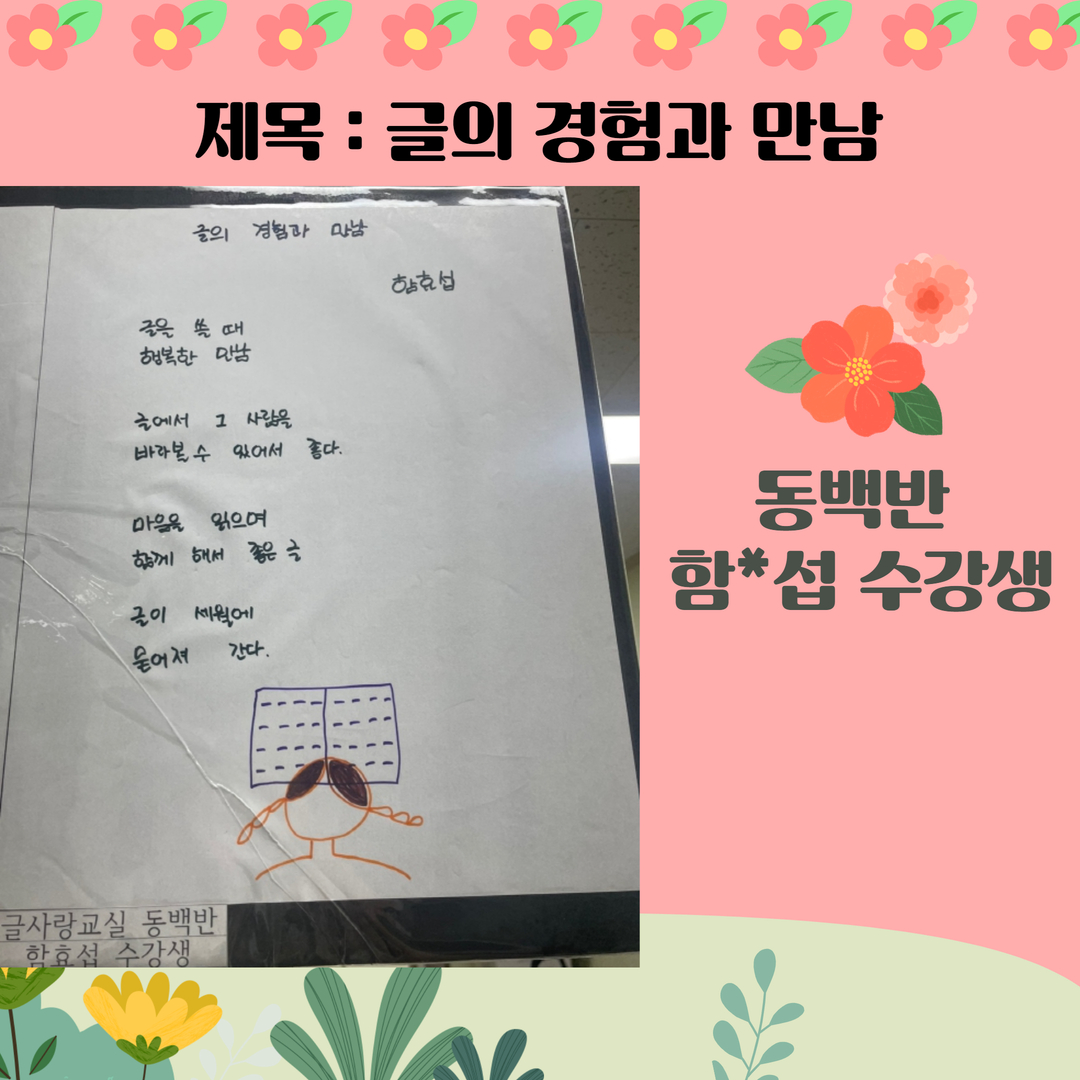 제목 : 글의 경험과 만남
글의 경험과 만남
함효섭
글을 쓸 때
행복한 만남
글에서 그 사람을
바라볼 수 있어서 좋다.
마음을 읽으며
함께 해서 좋은 글
글이 세월에
묻어져 간다.
글사랑교실 동백반
함효섭 수강생
동백반
함*섭 수강생